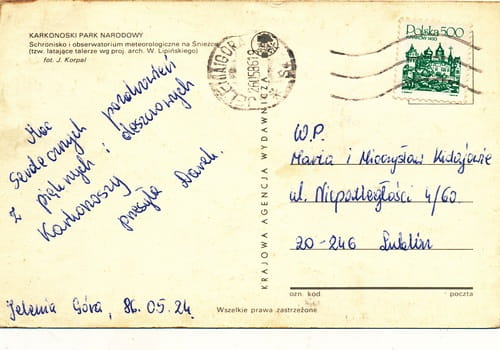 KARKONOSKI PARK NARODOWY
Schronisko i obserwatorium meteorologiczne na Śnieżce
(tzw. latające talerze wg proj. arch. W. Lipińskiego)
fot. J. Korpal
Moc
serdecznych pozdrowień
z pięknych i deszczowych
Karkonoszy
przesyła Darek.
Jelenia Góra, 86.05.24.
KRAJOWA AGENCJA WYDAWNICZA
Polska 500
W.P.
Maria i Mieczysław
ul. Niepodległości 4/60
20-246 Lublin
ozn. kod poczta
Wszelkie prawa zastrzeżone